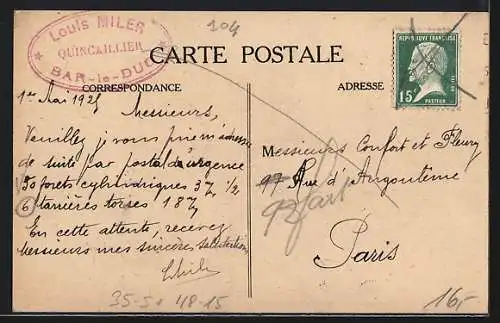 Louis MILER
QUINCAILLIER
BAR-le-DUC
104
CARTE POSTALE
CORRESPONDANCE
ADRESSE
RÉPUBLIQUE FRANÇAISE
15c
POSTES
PASTEUR
1er Mai 1925
Messieurs,
Veuillez, je vous prie m'adresser
de suite par postal d'urgence
50 forets cylindriques 37 1/2
6 tarières torses 187
En cette attente, recevez
Messieurs mes sincères salutations
LMiler
Messieurs Confort et Fleury
97 Rue d'Angoulème
Paris
35-5 + 48-15
16,-